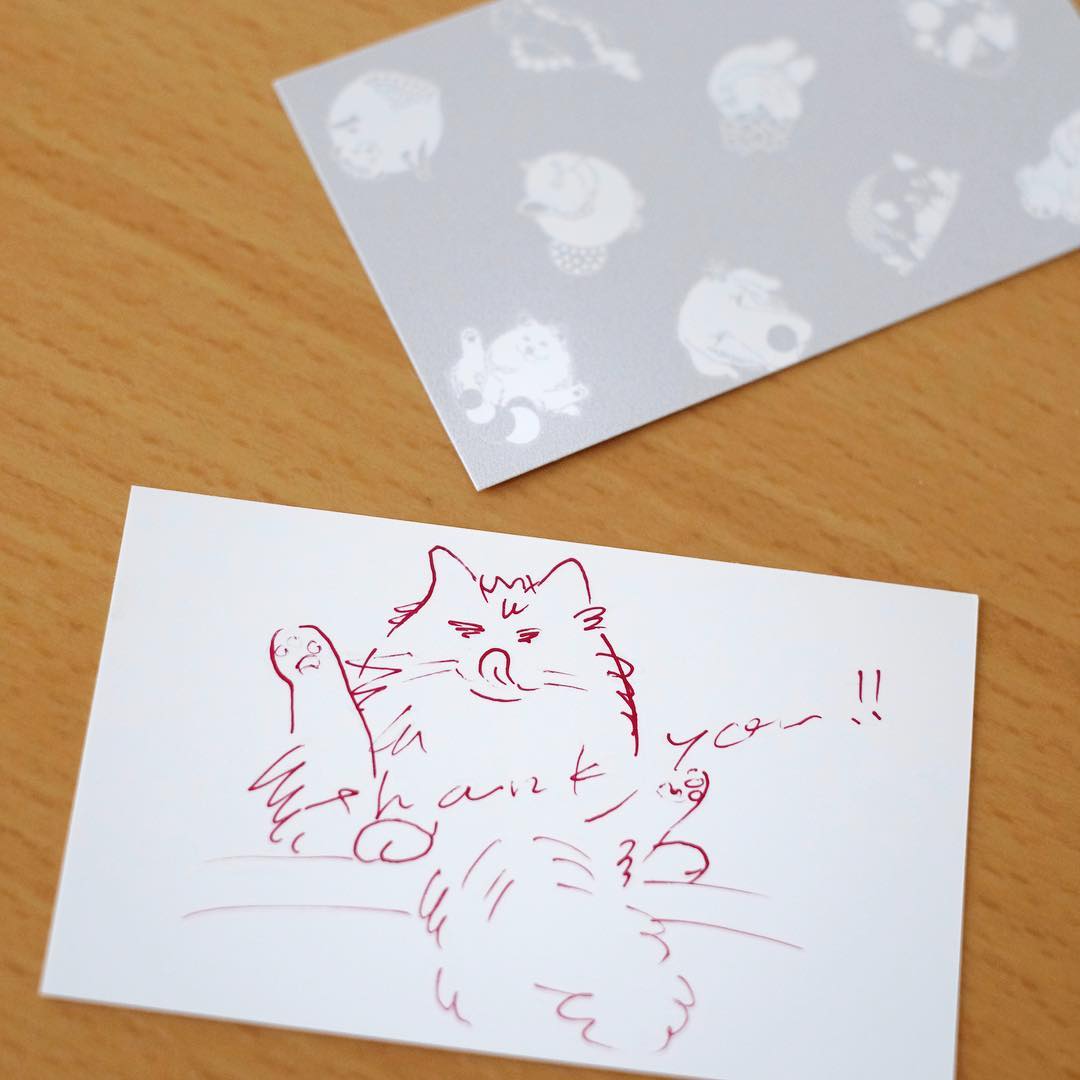 thank you!!